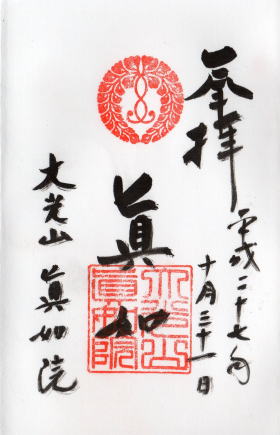 奉拝
平成二十七年
十月三十一日
眞如
大光山
眞如院
大光山
眞如院